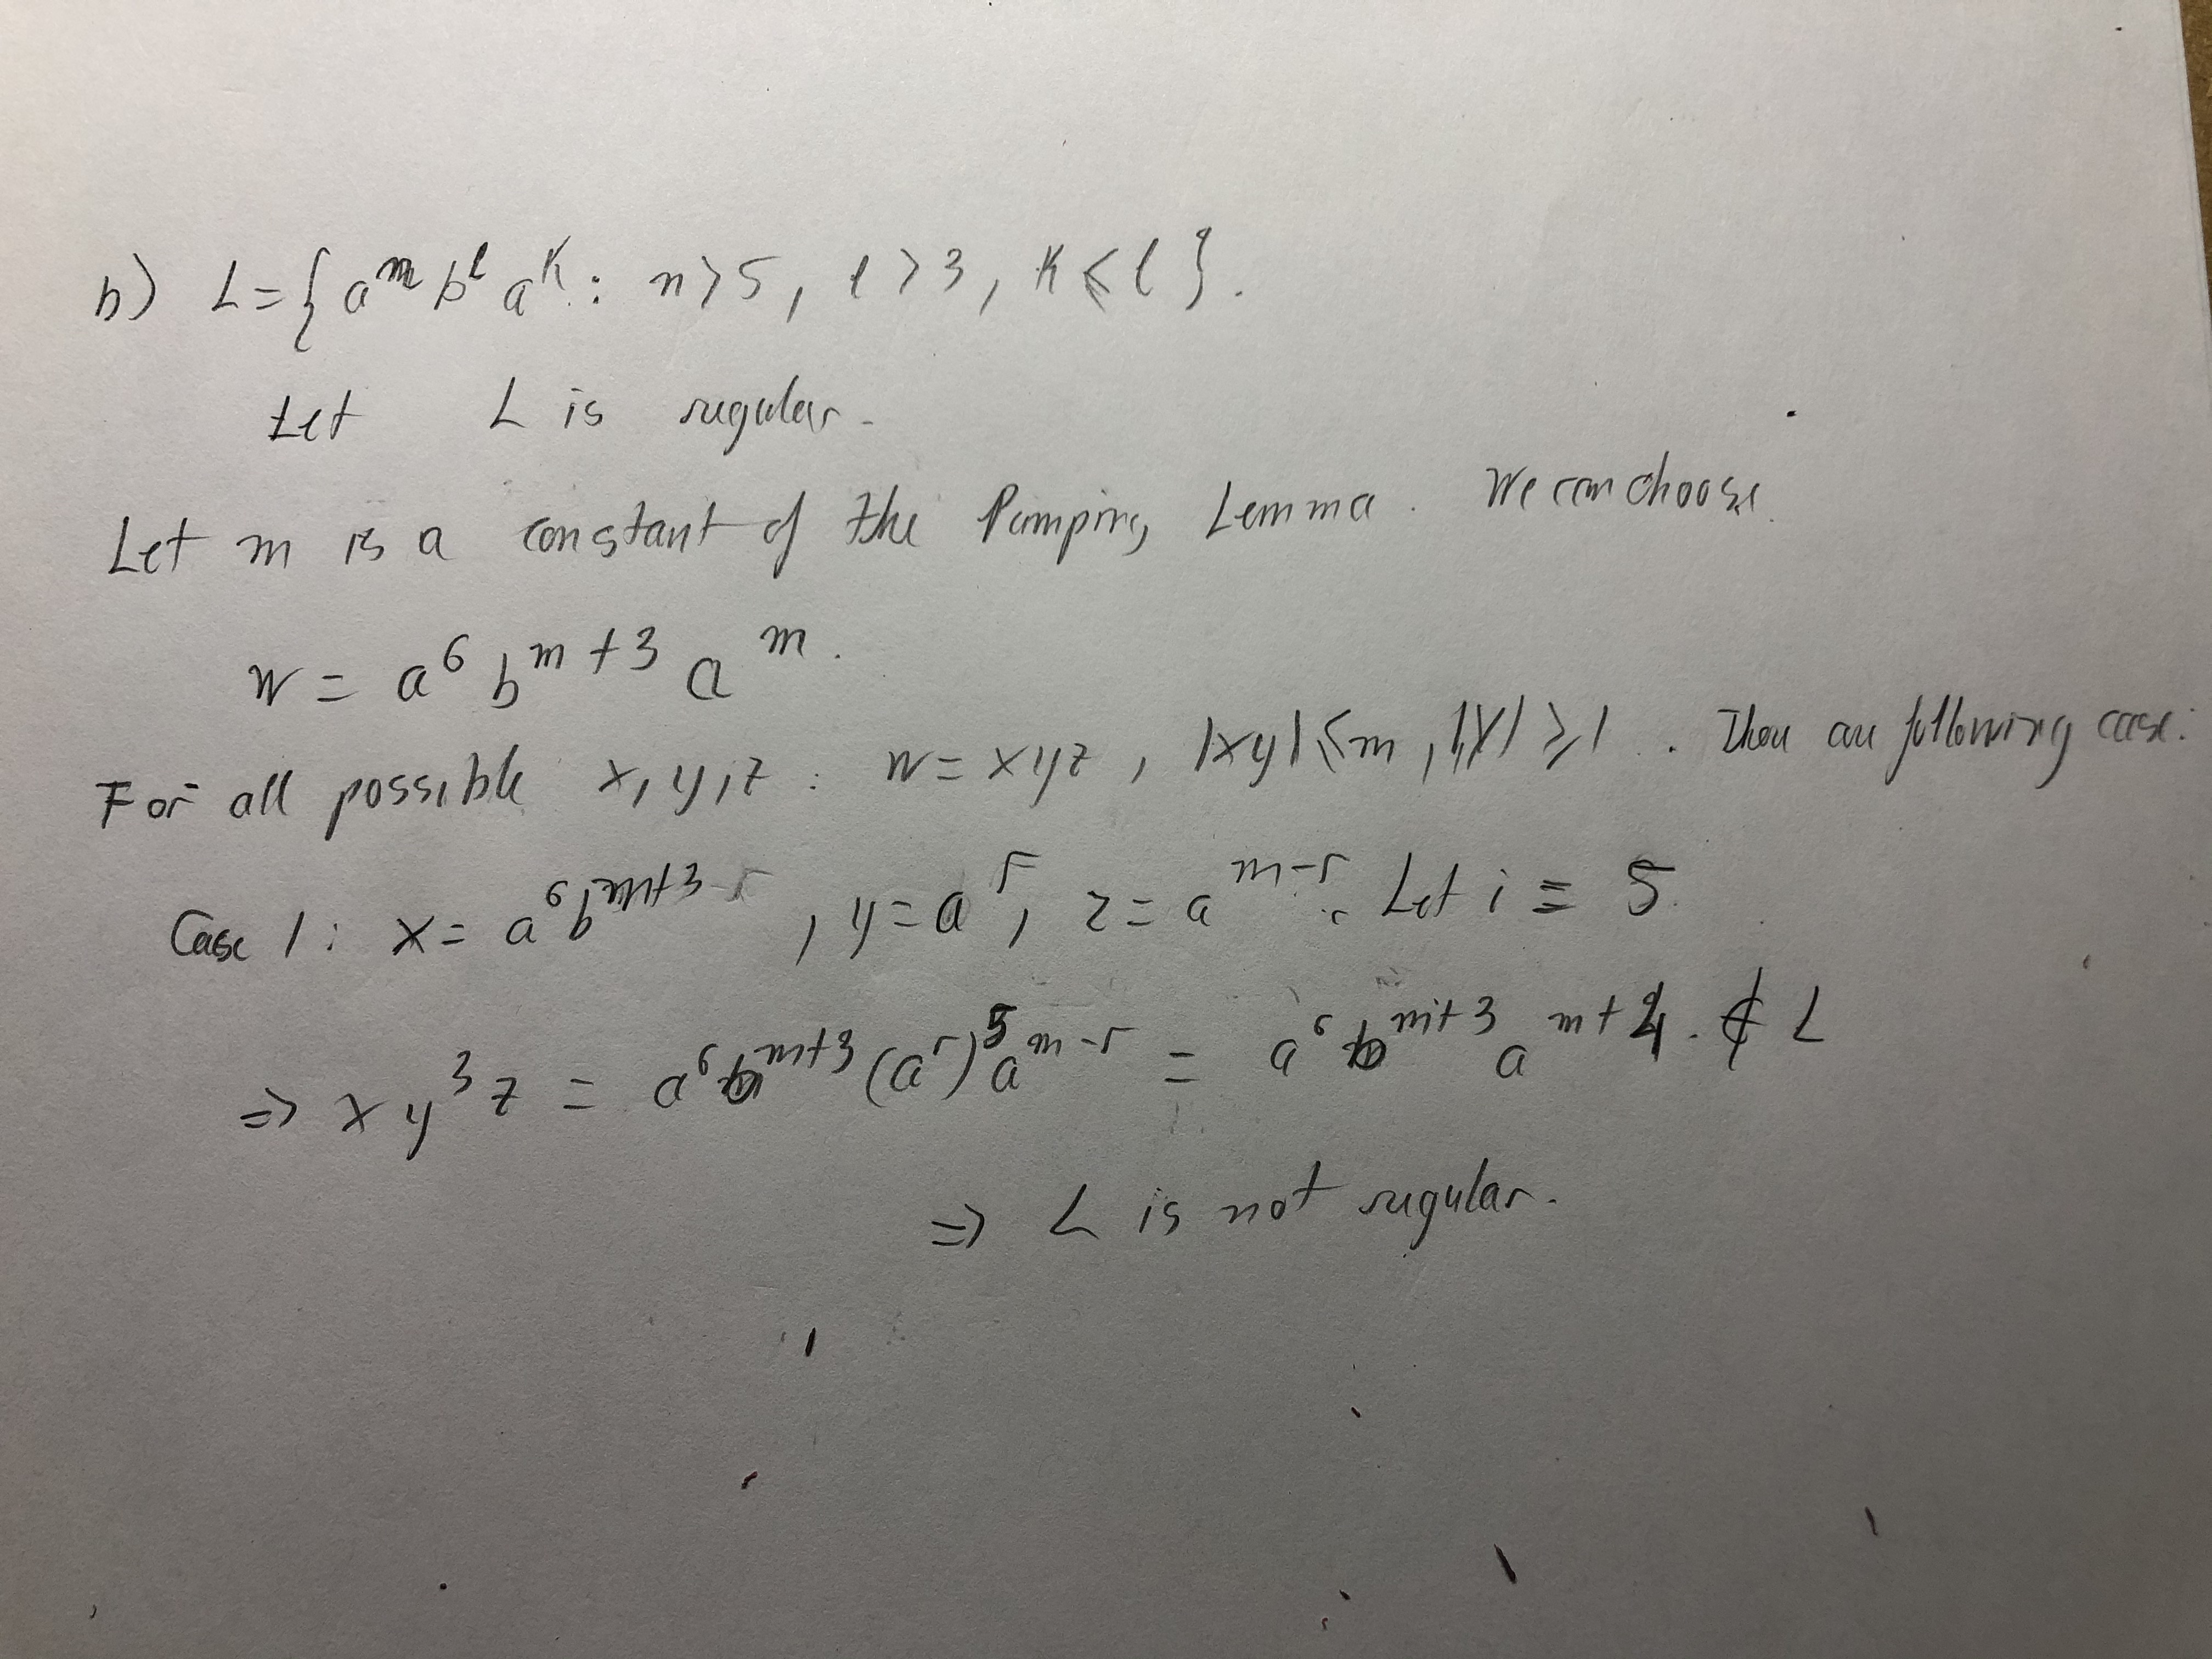 b) L = { aⁿ bˡ aᵏ : n > 5, l > 3, k ≤ l }.
Let L is regular.
Let m is a constant of the Pumping Lemma. We can choose
w = a⁶ bᵐ⁺³ aᵐ.
For all possible x, y, z : w = xyz, |xy| ≤ m, |y| ≥ 1. Then are following case:
Case 1: x = a⁶ bᵐ⁺³, y = aʳ, z = aᵐ⁻ʳ. Let i = 5.
⇒ xy³z = a⁶ bᵐ⁺³ (aʳ)⁵ aᵐ⁻ʳ = a⁶ bᵐ⁺³ aᵐ⁺⁴. ∉ L
⇒ L is not regular.